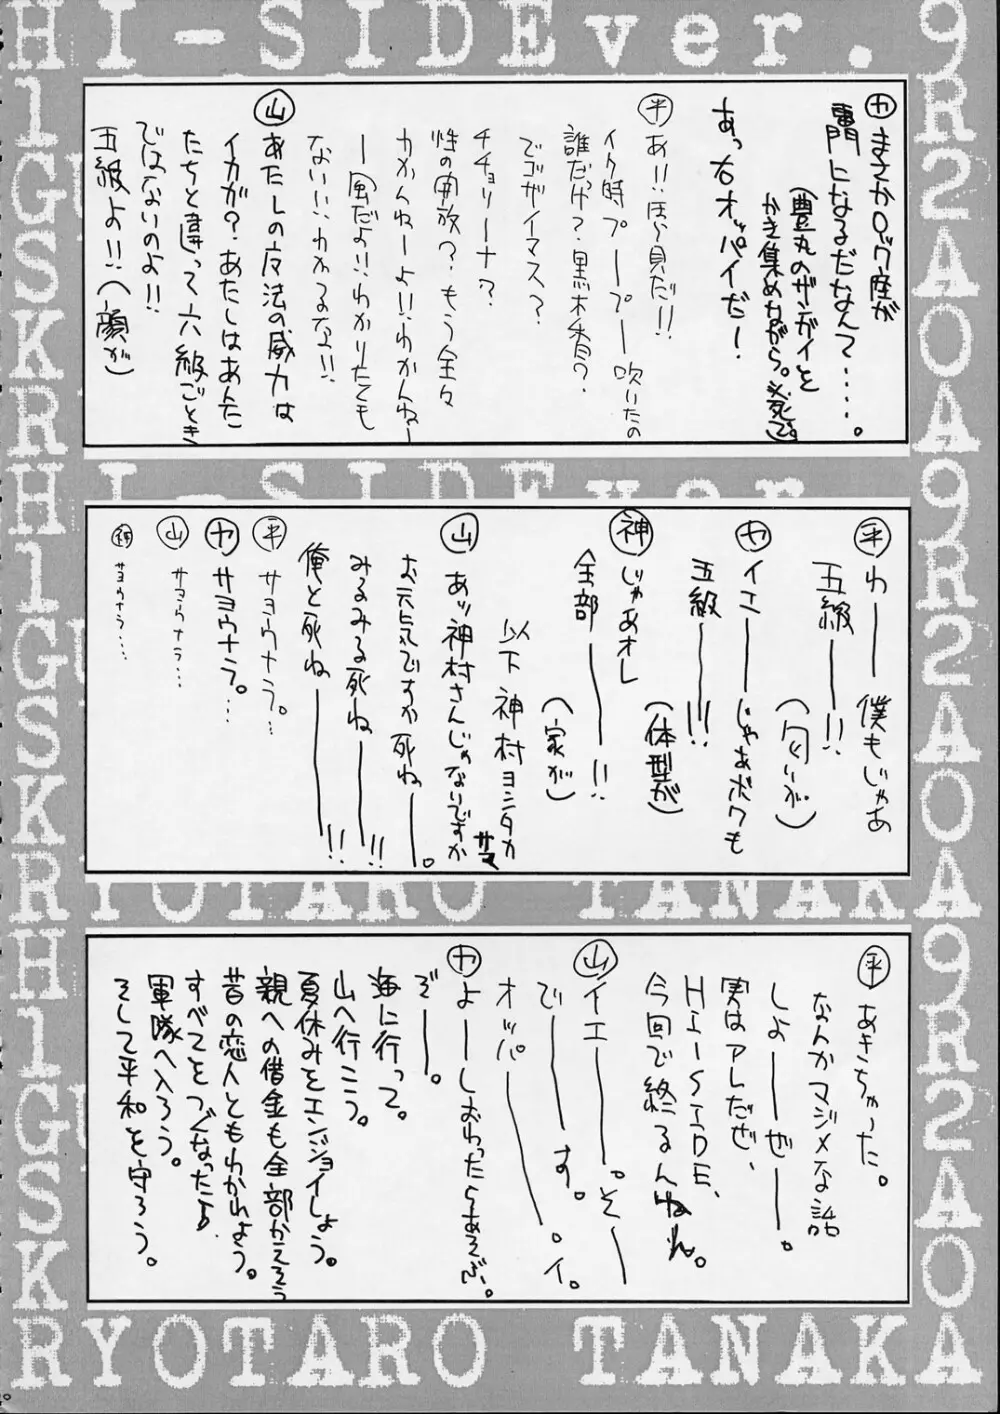 HI-SIDEver.9
カ まさかロック座が
闘になるだなんて‥‥。
(豊丸のザーガイを
かき集めながら。必死で。)
あっ右オッパイだー!
平 あ!!ほら貝だ!!
イク時プープー吹いたの
誰だっけ?黒木香?
でゴザイマス?
チチョリーナ?
性の開放?もう全々
わかんねーよ!!わかんねー
ー風だよ!!わかりたくも
ない!!わかるな!!
山 あたしの魔法の威力は
イカが?あたしはあんた
たちと違って六級ごとき
ではないのよ!!
五級よ!!(顔が)
HI-SIDEver.
平 わーー僕もじゃあ
五級ー!!
(匂いが)
カ イエーーじゃあボクも
五級ーー!!!
(体型が)
神 じゃあオレ
全部ーー!!
(家が)
以下 神村ヨシタカ サマ
山 あッ神村さんじゃないですか
お元気ですか死ねーー。
みるみる死ねーー!!
俺と死ねーーー!!
平 サヨウナラ。…
カ サヨウナラ。…
山 サヨウナラ…
神 サヨウナラ…
RYOTARO TANAKA
平 あきちゃった。
なんかマジメな話
しよーーぜーー。
実はアレだぜ、
HI-SIDE、
今回で終るんねん。
山 イエーー。そーー
でーーす。
オッパーーー。イ。
カ よーーしおわったらあそぶ。
ぞーー。
海に行って。
山へ行こう。
夏休みをエンジョイしよう。
親への借金も全部かえそう
昔の恋人ともわかれよう。
すべてをつぐなったよ
軍隊へ入ろう。
そして平和を守ろう。
RYOTARO TANAKA